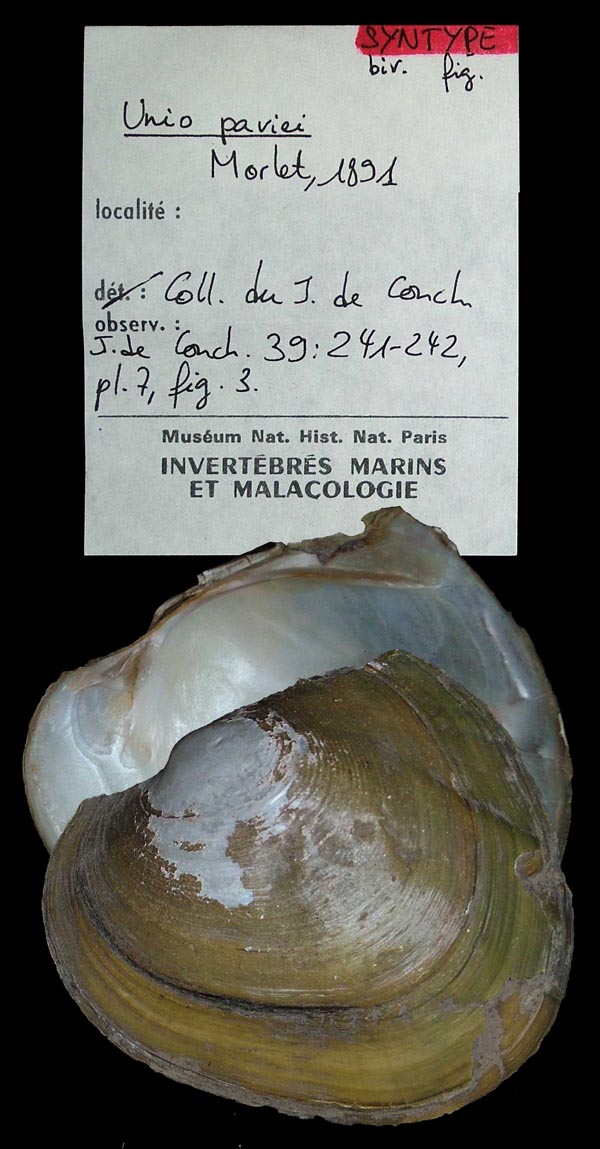 SYNTYPE
biv. fig.
Unio paviei
Morlet, 1891
localité :
dét. : Coll. du J. de Conch.
observ. :
J. de Conch. 39: 241-242,
pl. 7, fig. 3.
Muséum Nat. Hist. Nat. Paris
INVERTÉBRÉS MARINS
ET MALACOLOGIE